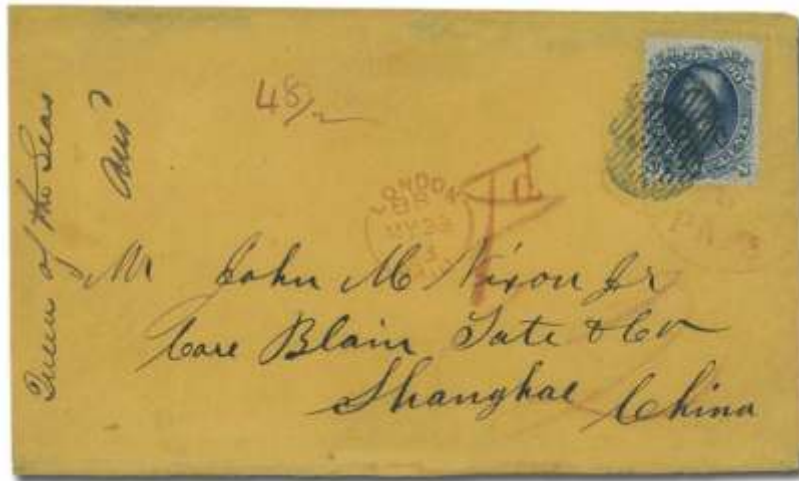 Queen of the Seas
48/2
LONDON
MY 23
PAID
Mr John M Nixon Jr
Care Blain Tate & Co
Shanghae China